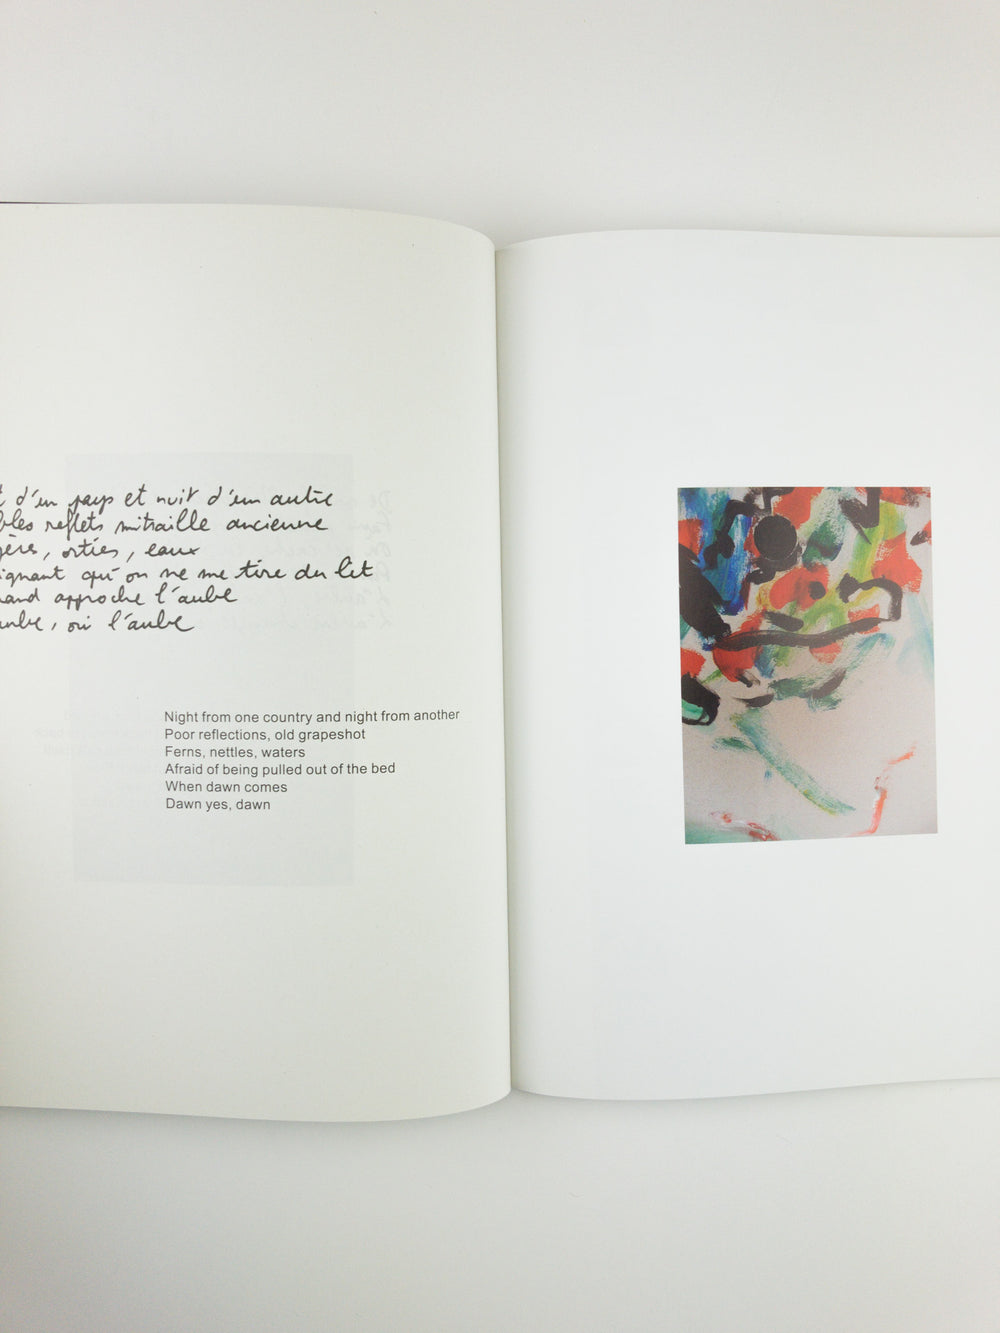 d'un pays et nuit d'un autre
reflets mitraille ancienne
orties, eaux
qu'on ne me tire du lit
approche l'aube
oui l'aube
Night from one country and night from another
Poor reflections, old grapeshot
Ferns, nettles, waters
Afraid of being pulled out of the bed
When dawn comes
Dawn yes, dawn